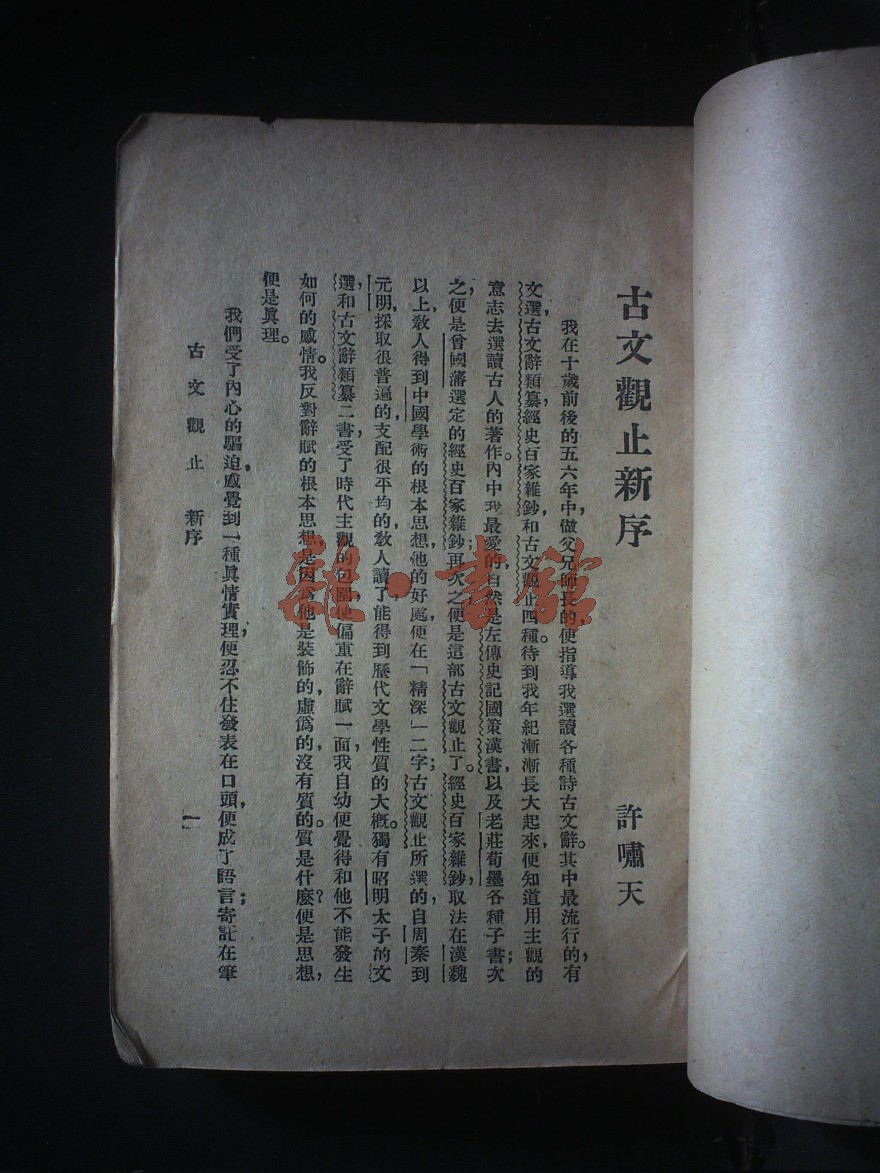 古文觀止新序
許嘯天
我在十歲前後的五六年中,做父兄師長的,便指導我選讀各種詩古文辭。其中最流行的,有
文選,古文辭類纂,經史百家雜鈔,和古文觀止四種。待到我年紀漸漸長大起來,便知道用主觀的
意志去選讀古人的著作。內中我最愛的,自然是左傳史記國策漢書,以及老莊荀墨各種子書;次
之,便是曾國藩選定的經史百家雜鈔;再次之,便是這部古文觀止了。經史百家雜鈔,取法在漢魏
以上,教人得到中國學術的根本思想,他的好處,便在「精深」二字;古文觀止所選的,自周秦到
元明,採取很普遍的,支配很平均的,教人讀了,能得到歷代文學性質的大概。獨有昭明太子的文
選,和古文辭類纂二書,受了時代主觀的包圍,便偏重在辭賦一面,我自幼便覺得和他不能發生
如何的感情。我反對辭賦的根本思想,是因為他是裝飾的,虛偽的,沒有質的。質是什麼?便是思想,
便是眞理。
我們受了內心的驅迫,感覺到一種眞情實理,便忍不住發表在口頭,便成了語言;寄託在筆
古文觀止 新序
一
雜·書館